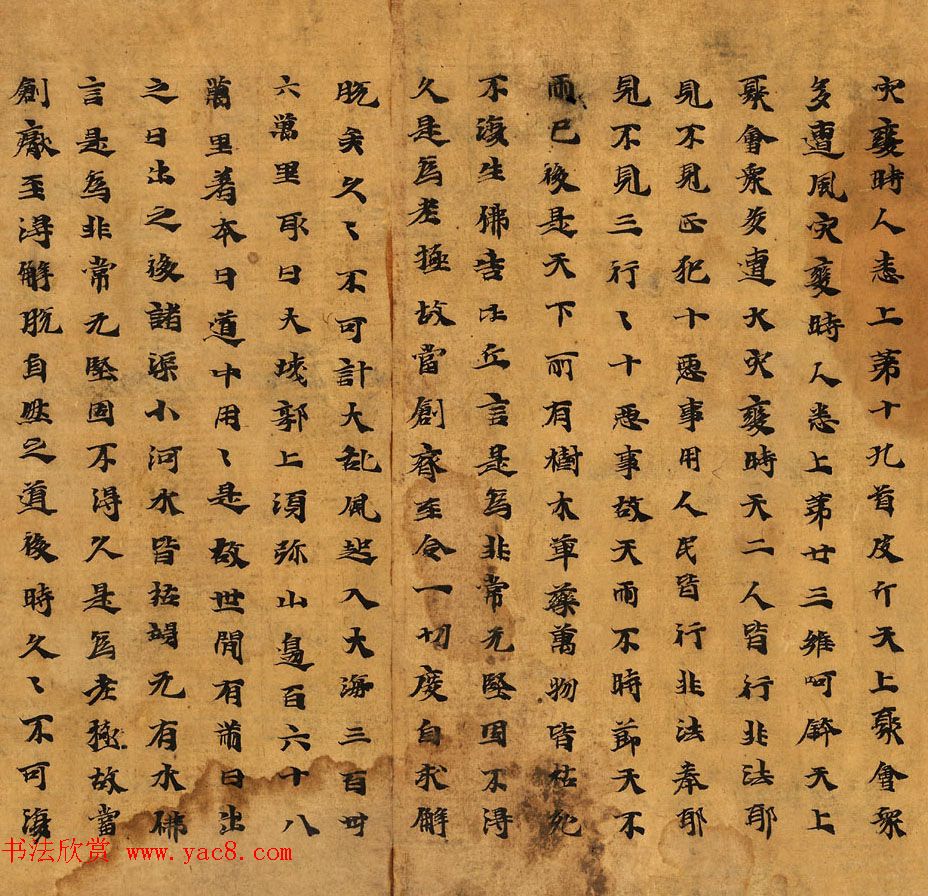 灾變時人悉上第十孔首皮斤天上聚會眾
多遭風灾變時人悉上第廿三維呵鉢天上
聚會眾多遭火灾變時天二人皆行非法耶
見不見正犯十惡事用人民皆行非法奉耶
見不見三行〻十惡事故天雨不時節天不
雨已後是天下所有樹木草藥萬物皆枯死
不復生佛告比丘言是為非常无堅固不得
久是為老極故當創齊至令一切度自求解
脫矣久〻不可計大乱風起入大海三百卅
六萬里取日大城郭上須弥山邊百六十八
萬里著本日道中用〻是故世間有兩日出
之日出之後諸渠小河水皆枯竭无有水佛
言是為非常无堅固不得久是為老極故當
創至得解脫自然之道後時久〻不可復
书法欣赏 www.yac8.com